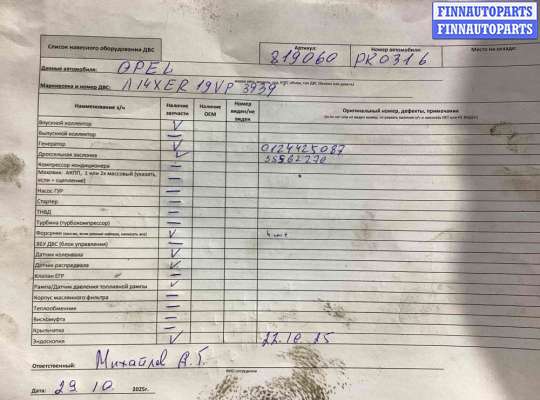 FINNAUTOPARTS
FINNAUTOPARTS
FINNAUTOPARTS
Список навесного оборудования ДВС
Артикул: 819060
Номер автомобиля: PK0316
Место на складе:
Данные автомобиля: OPEL
Маркировка и номер ДВС: A14XER 19VP 3939
Наименование з/ч
Наличие запчасти
Наличие ОСМ
Номер виден/не виден
Оригинальный номер, дефекты, примечания
Впускной коллектор ✓
Выпускной коллектор —
Генератор ✓ 0124425087
Дроссельная заслонка ✓ 55562270
Компрессор кондиционера —
Маховик АКПП, 1 или 2х массовый (указать, если + сцепление) —
Насос ГУР —
Стартер —
ТНВД —
Турбина (турбокомпрессор) —
Форсунки ✓ 4 шт
БЕУ ДВС (блок управления) —
Датчик коленвала ✓
Датчик распредвала ✓
Клапан ЕГР —
Рампа/Датчик давления топливной рампы ✓
Корпус масляного фильтра —
Теплообменник —
Вискомуфта —
Крыльчатка —
Эндоскопия ✓ 22.10 25
Ответственный: Михайлов А.Г.
ФИО сотрудника
Дата: 29 10 2025г.